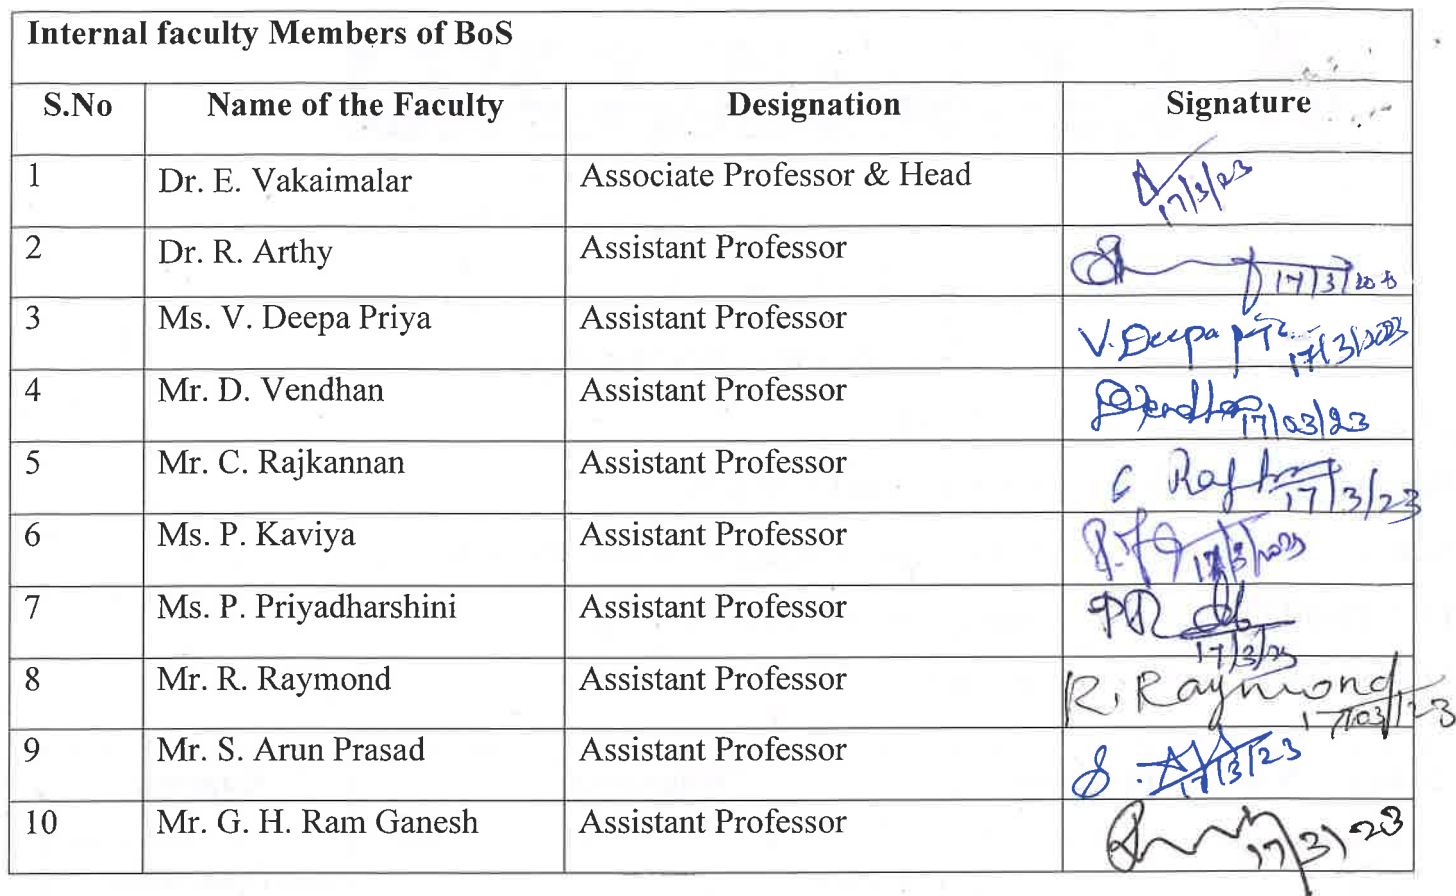 Internal faculty Members of BoS
S.No Name of the Faculty Designation Signature
1 Dr. E. Vakaimalar Associate Professor & Head 17/3/23
2 Dr. R. Arthy Assistant Professor 17/3/20
3 Ms. V. Deepa Priya Assistant Professor V. Deepa 17/3/2023
4 Mr. D. Vendhan Assistant Professor DVendhan 17/03/23
5 Mr. C. Rajkannan Assistant Professor C Raj 17/3/23
6 Ms. P. Kaviya Assistant Professor P. 17/3/2023
7 Ms. P. Priyadharshini Assistant Professor 17/3/23
8 Mr. R. Raymond Assistant Professor R. Raymond 17/03/23
9 Mr. S. Arun Prasad Assistant Professor S. 17/3/23
10 Mr. G. H. Ram Ganesh Assistant Professor 17/3/23